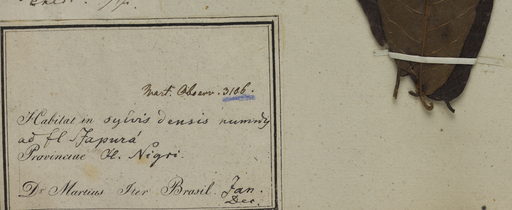 Mart. Observ. 3106.
Habitat in sylvis densis
ad fl. Japurá
Provinciae R. Nigri.
Dr Martius Iter Brasil. Jan.
Dec.